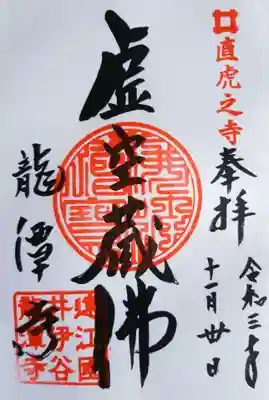 直虎之寺
奉拝
令和三年
十一月廿日
虚空蔵佛
龍潭寺
遠江國
井伊谷
龍潭寺